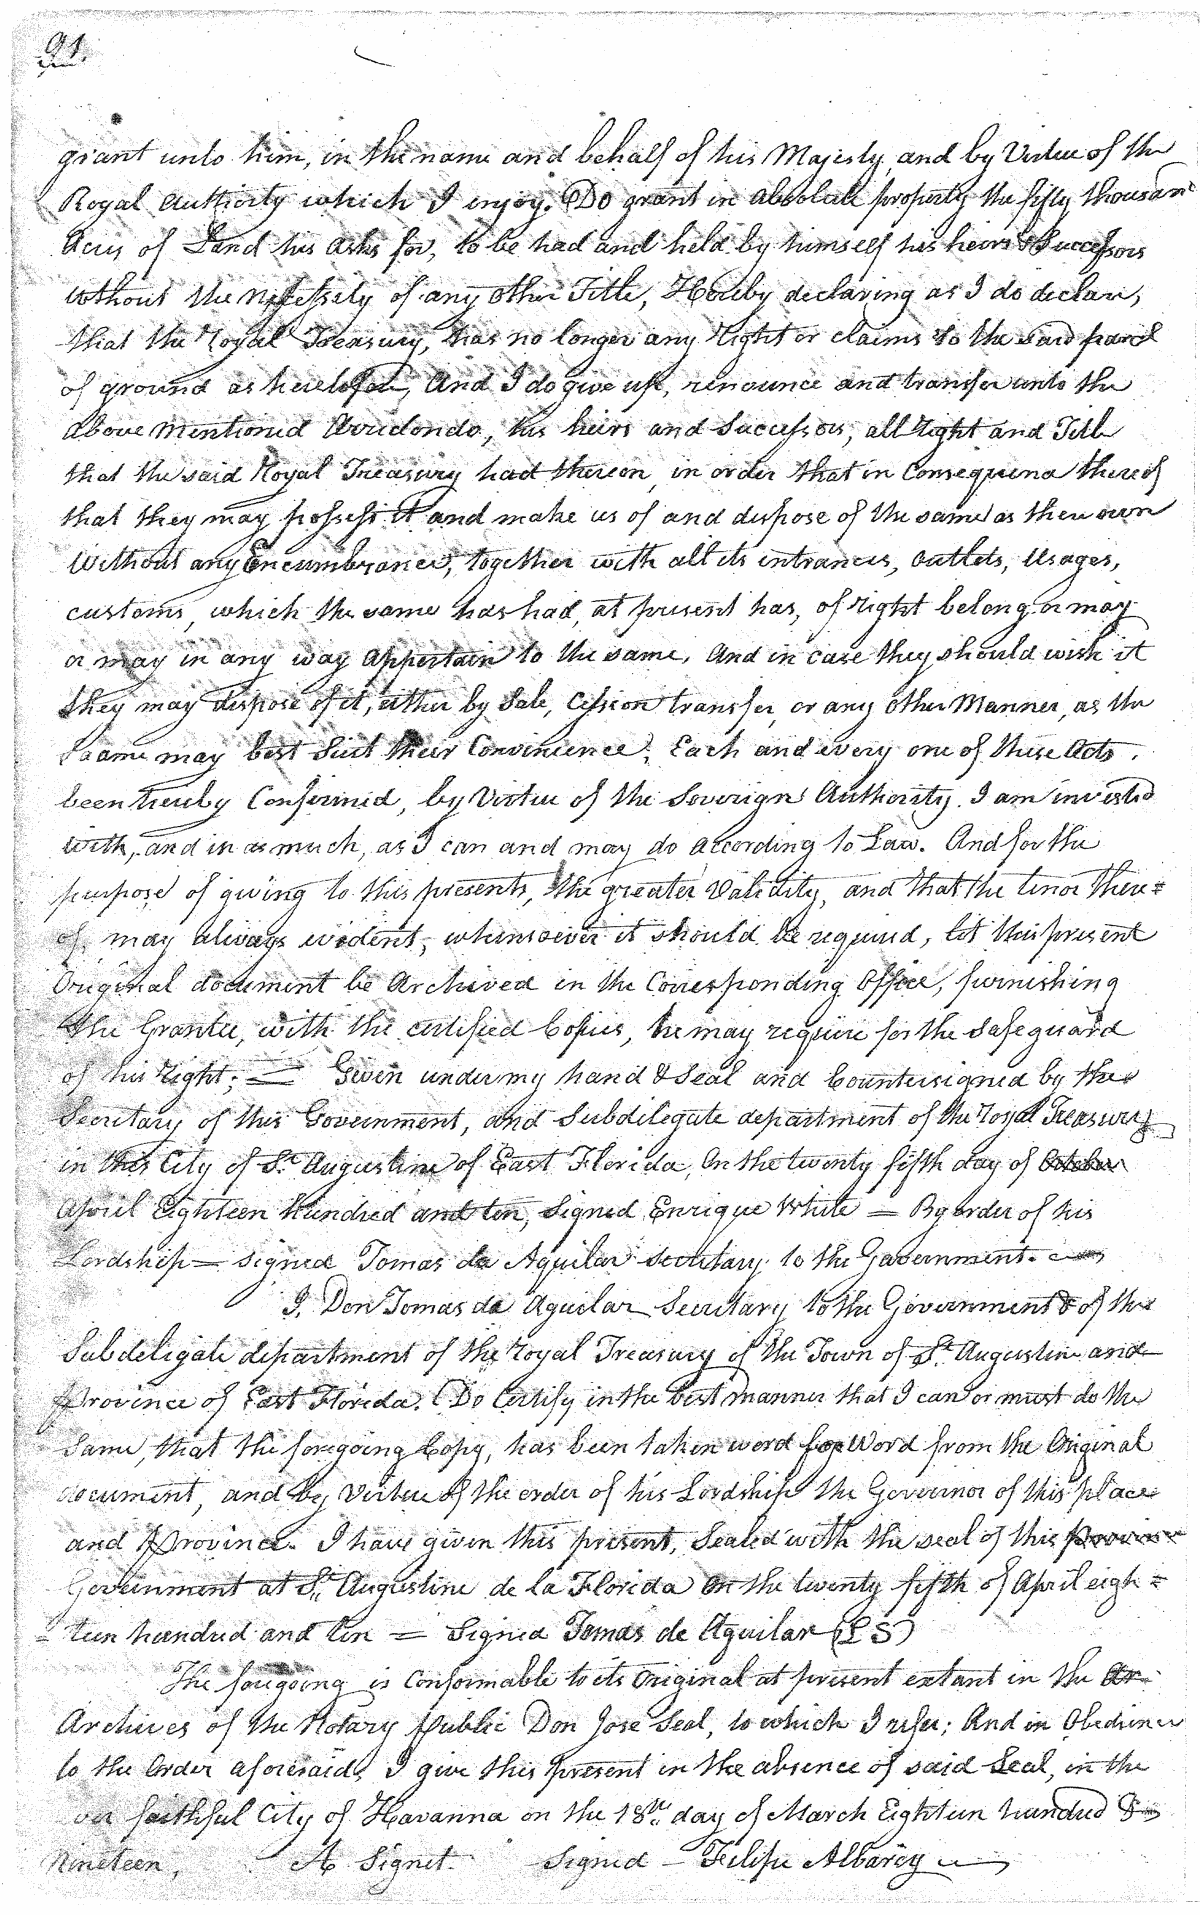 91.
grant unto him, in the name and behalf of his Majesty, and by Virtue of the
Royal Authority which I enjoy. Do grant in absolute property the fifty thousand
Acres of Land his asks for, to be had and held by himself his heirs & Successors
without the Necessity of any other Title, Hereby declaring as I do declare,
that the Royal Treasury, has no longer any right or claims to the said parcel
of ground as heretofore, And I do give up, renounce and transfer unto the
above Mentioned Arredondo, his heirs and Successors, all right and Title
that the said Royal Treasury had thereon, in order that in Consequence thereof
that they may possess it and make us of and dispose of the same as their own
without any Encumbrance, together with all its entrances, outlets, usages,
customs, which the same has had, at present has, of right belong or may
or may in any way appertain to the same. And in case they should wish it
they may dispose of it, either by Sale, Cession transfer, or any other Manner, as the
Saame may best Suit their Convinience, Each and every one of these Acts.
been hereby Confirmed, by Virtue of the Soverign Authority I am invested
with, and in as much, as I can and may do according to Law. And for the
purpose of giving to this presents, the greater Validity, and that the tenor there=
of, may always evident, whensoever it should be required, let this present
Original document be Archived in the Corresponding Office, furnishing
the Grantee, with the certified Copies, he may require for the safeguard
of his right; = Given under my hand & Seal and Countersigned by the
Secretary of this Government, and Subdelegate department of the royal Treasury
in this City of St. Augustine of East Florida, On the twenty fifth day of October
April Eighteen hundred and ten, signed Enrique White = By order of his
Lordship = signed Tomas de Aquilar secretary to the Government.
I, Don Tomas de Aguilar Secretary to the Government & of the
Subdeligate department of the royal Treasury of the Town of St. Augustine and
Province of East Florida. Do Certify in the best manner that I can or must do the
Same, that the foregoing Copy, has been taken word for Word from the Original
document, and by Virtue of the order of his Lordship the Governor of this place
and Province. I have given this present, Sealed with the seal of this Province
Government at St. Augustine de la Florida on the twenty fifth of April eigh=
=teen hundred and ten = Signed Tomas de Aguilar (LS)
The foregoing is Conformable to its Original at present extant in the Ar
Archives of the Notary Public Don Jose Seal, to which I refer; And in Obedience
to the Order aforesaid, I give this present in the absence of said Seal, in the
ver faithful City of Havanna on the 18th day of March Eighteen hundred &
Nineteen, A Signet. Signed – Felipe Albarey